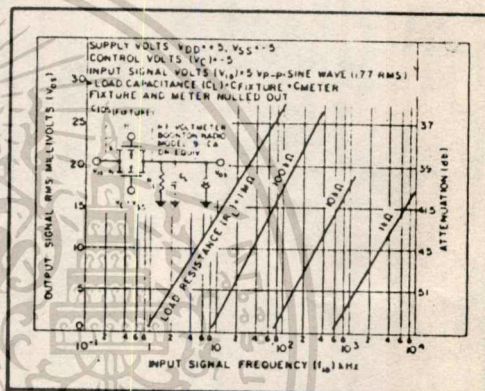 SUPPLY VOLTS VDD = +5, VSS = -5
CONTROL VOLTS (VC) = -5
INPUT SIGNAL VOLTS (Vis) = 5 Vp-p SINE WAVE (1.77 RMS)
LOAD CAPACITANCE (CL) = CFIXTURE + CMETER
FIXTURE AND METER NULLED OUT
RF VOLTMETER
BOONTON RADIO
MODEL 91 CA
OR EQUIV
OUTPUT SIGNAL RMS MILLIVOLTS (Vos)
30
25
20
15
10
5
0
LOAD RESISTANCE (RL) = 1 MΩ
100 kΩ
10 kΩ
1 kΩ
37
39
41.5
45
51
ATTENUATION (db)
10⁻¹ 2 4 6 8 1 2 4 6 8 10 2 4 6 8 10² 2 4 6 8 10³ 2 4 6 8 10⁴
INPUT SIGNAL FREQUENCY (fis) kHz